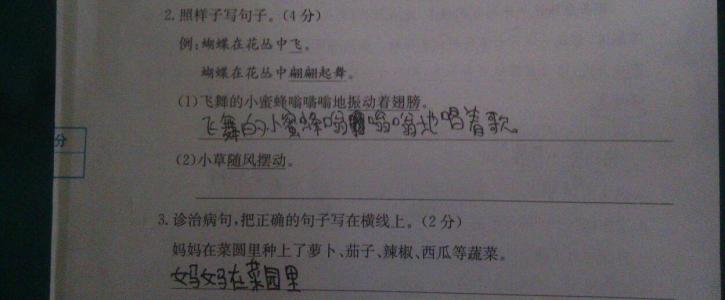 2.照样子写句子。(4分)
例:蝴蝶在花丛中飞。
蝴蝶在花丛中翩翩起舞。
(1)飞舞的小蜜蜂嗡嗡嗡地振动着翅膀。
飞舞的小蜜蜂嗡嗡嗡地唱着歌。
分
(2)小草随风摆动。
3.诊治病句,把正确的句子写在横线上。(2分)
妈妈在菜圆里种上了萝卜、茄子、辣椒、西瓜等蔬菜。
妈妈在菜园里